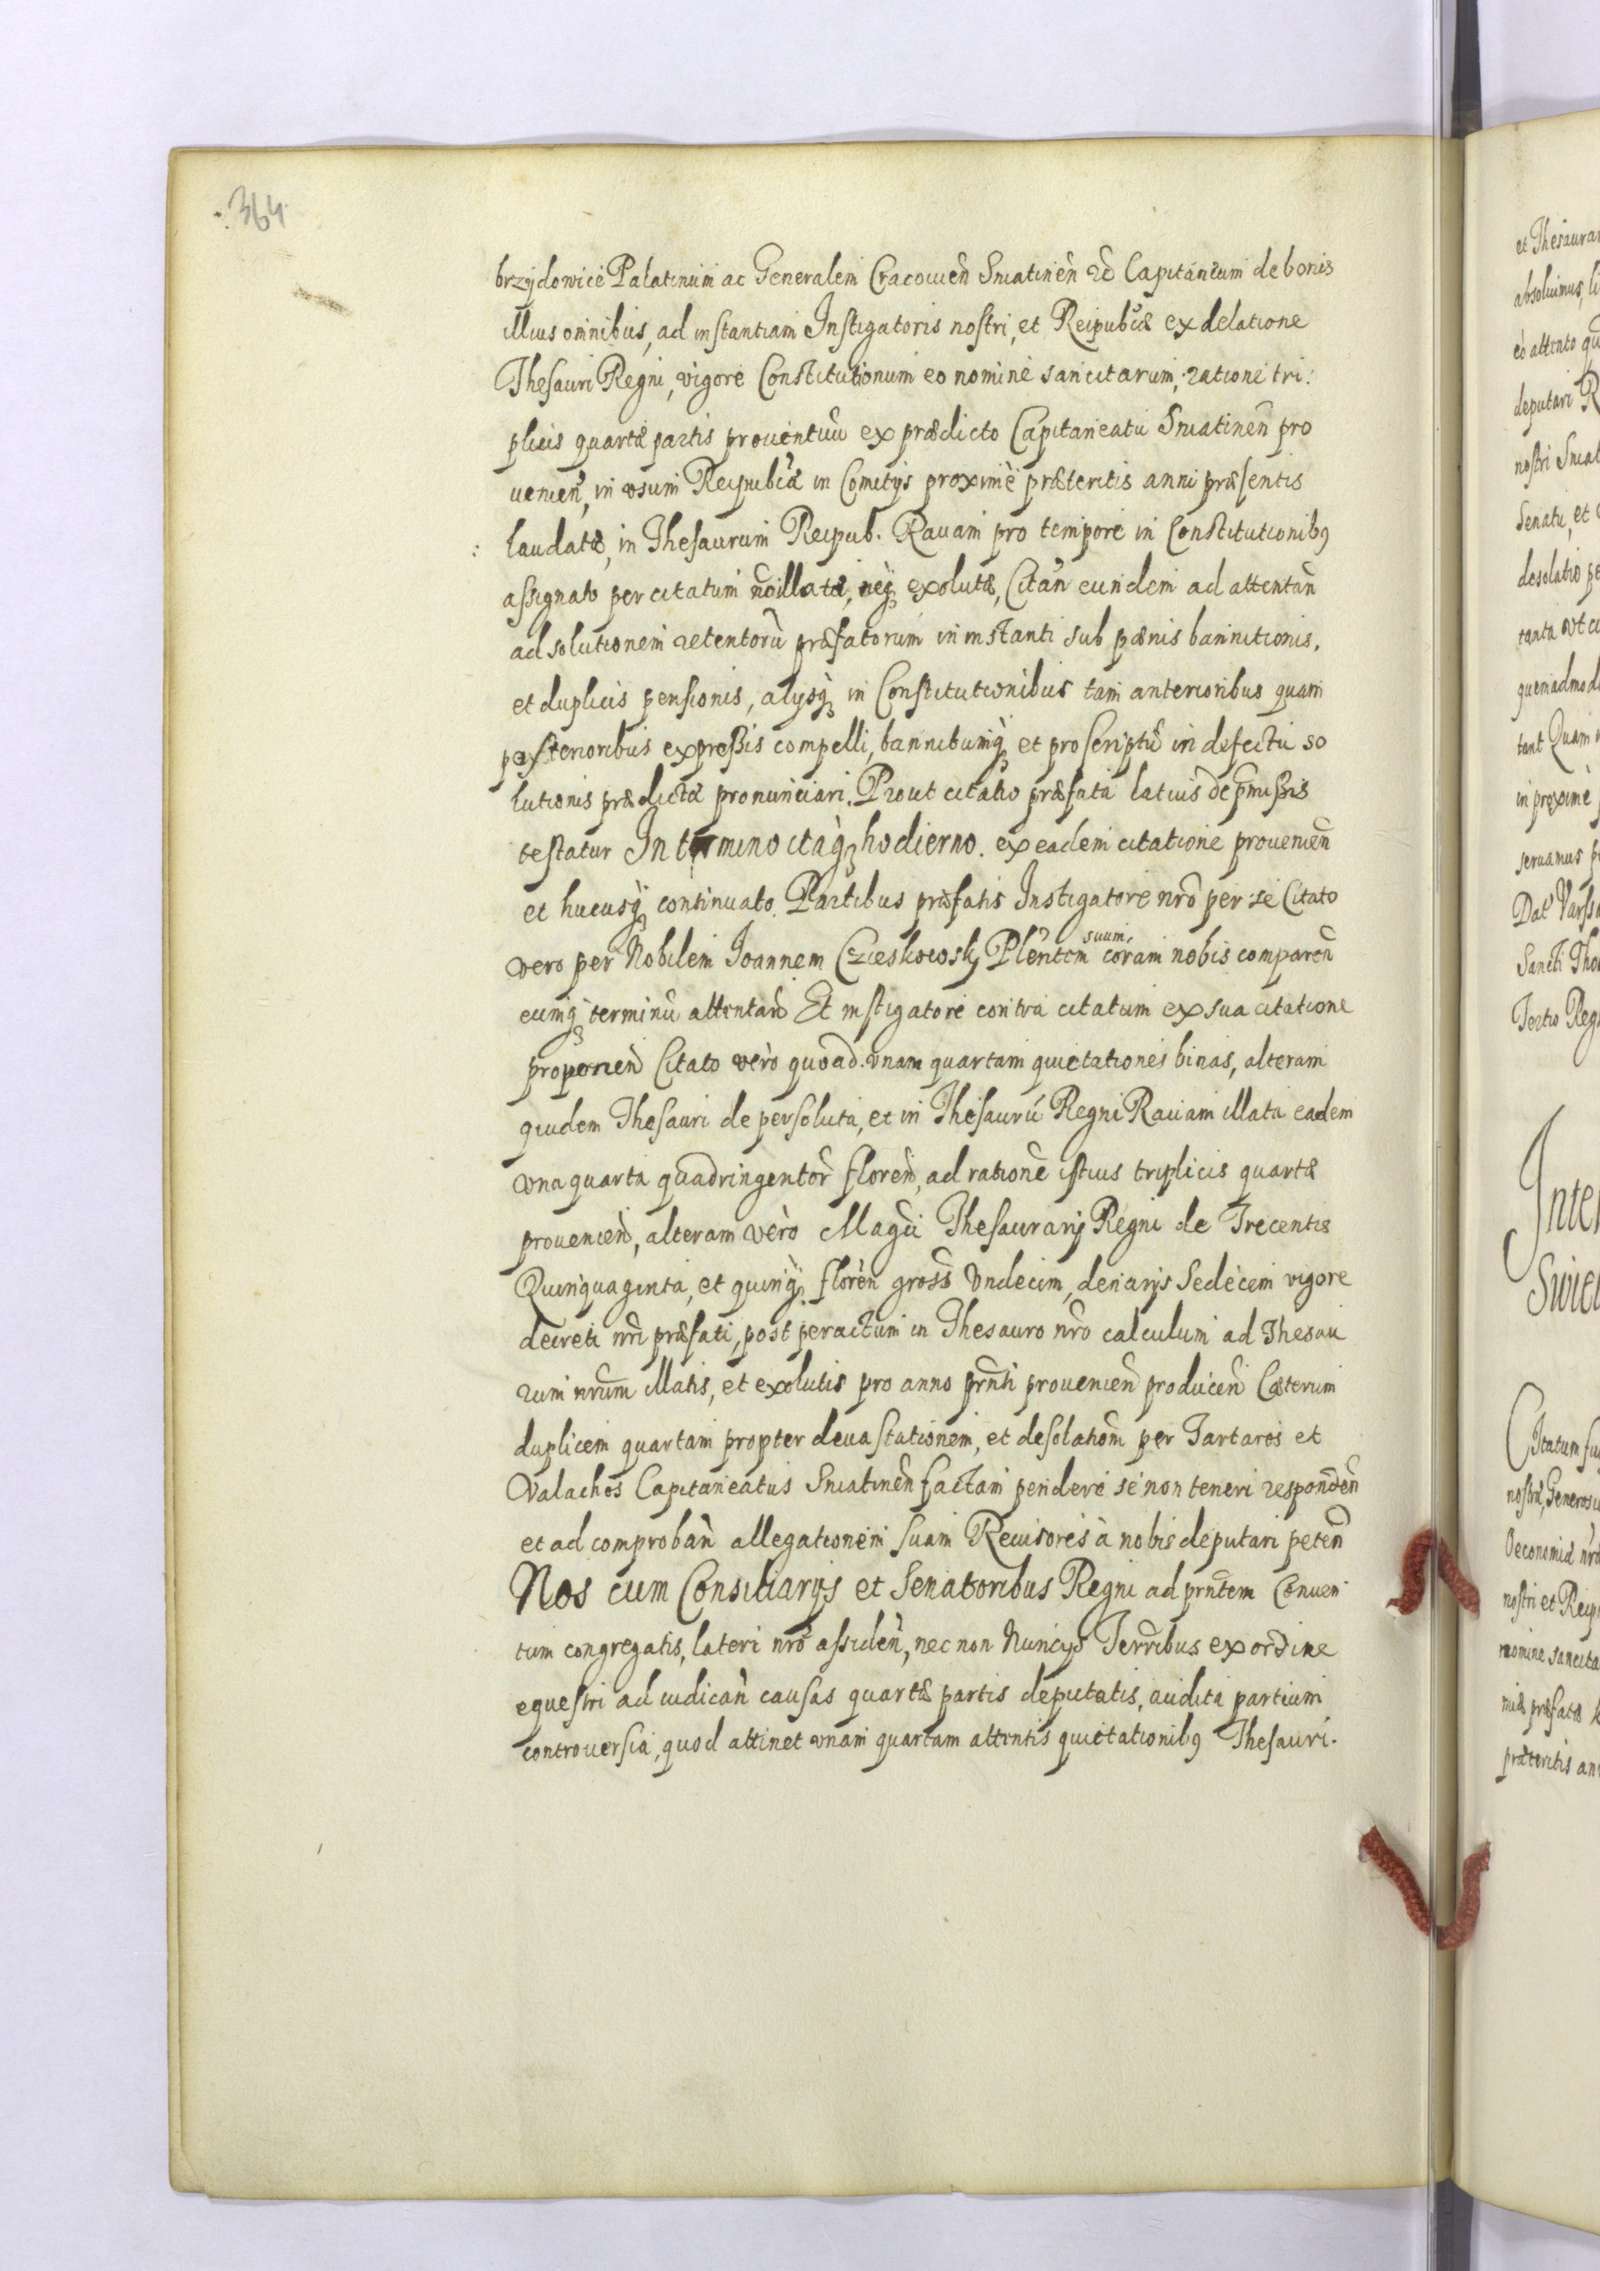 364
brzydowice Palatinum ac Generalem Cracouien̄ Sniatinen̄ Capitaneum de bonis
illius omnibus, ad instantiam Instigatoris nostri, et Reipubcæ ex delatione
Thesauri Regni, vigore Constitutionum eo nomine sancitarum, ratione tri:
plicis quartæ partis prouentuu ex prædicto Capitaneatu Sniatinen̄ pro
uenien̄, in vsum Reipubcæ in Comitijs proximè præteritis anni præsentis
laudatæ, in Thesaurum Reipub. Rauam pro tempore in Constitutionibꝫ
assignato per citatum nō illatæ, neqꝫ exolutæ, Citan̄ eundem ad attentan̄
ad solutionem retentorū præfatorum in instanti sub pænis bannitionis,
et duplicis pensionis, alijsqꝫ in Constitutionibus tam anterioribus quam
posterioribus expressis compelli, bannitumqꝫ et proscriptū in defectu so
lutionis prædictæ pronunciari. Prout citatio præfata latius de pmissis
testatur In termino itaqꝫ hodierno. ex eadem citatione prouenien̄
et hucusqꝫ continuato. Partibus præfatis Instigatore nrō per se Citato
vero per Nobilem Joannem Czieskowsky Plentem suum coram nobis comparen̄
eumqꝫ terminū attentan̄ Et instigatore contra citatum ex sua citatione
proponen̄ Citato verò quoad vnam quartam quietationes binas, alteram
quidem Thesauri de persoluta, et in Thesaurū Regni Rauam illata eadem
vna quarta quadringentor̄ floren̄, ad ratione istius triplicis quartæ
prouenien̄, alteram verò Magci Thesaurarij Regni de Trecentis
Quinquaginta, et quinqꝫ floren̄ gross Vndecim, denarijs Sedecim vigore
decreti nri præfati, post peractum in Thesauro nrō calculum ad Thesau
rum nrum illatis, et exolutis pro anno prnti prouenien̄ producen̄ Cæterum
duplicem quartam propter deuastationem, et desolatiom per Tartaros et
Valachos Capitaneatus Sniatinen̄ factam pendere se non teneri responden̄
et ad comproban̄ allegationem suam Reuisores à nobis deputari peten̄
Nos cum Consiliarijs et Senatoribus Regni ad prntem Conuen
tum congregatis, lateri nrō assiden̄, nec non Nuncijs Terribus ex ordine
equestri ad iudican̄ causas quartæ partis deputatis, audita partium
controuersia, quod attinet vnam quartam attentis quietationibꝫ Thesauri.
et Thesaurar
absoluimus, li
eò attento qu
deputari R
nostri Sniat
Senatu, et
desolatio pe
tanta vt cu
quemadmodu
tant Quam
in proximè
seruamus
Dat Varss
Sancti Tho
Tertio Reg
Inter
Swie
Citatum fu
nostrâ, Generosu
Oeconomiæ nrō
nostri et Reip
nomine sancita
miæ præfatæ
præteritis an